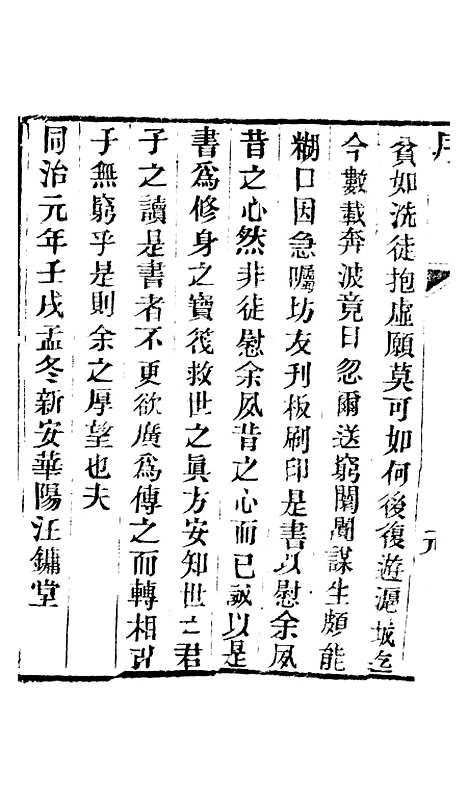 貧如洗徒抱虛願莫可如何後復遊滬城迄
今數載奔波竟日忽爾送窮闤闠謀生頗能
糊口因急囑坊友刊板刷印是書以慰余夙
昔之心然非徒慰余夙昔之心而已誠以是
書為修身之寶筏救世之眞方安知世之君
子之讀是書者不更欲廣為傳之而轉相
于無窮乎是則余之厚望也夫
同治元年壬戌孟冬新安華陽汪鏞堂